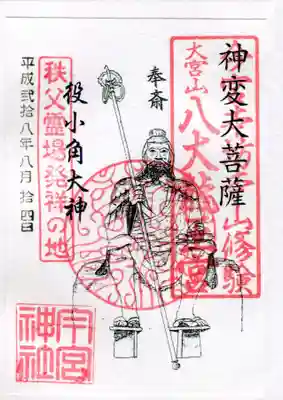 神変大菩薩
大宮山
八大龍王宮
奉斎
役小角大神
秩父霊場発祥の地
平成弐拾八年八月拾四日
今宮
神社